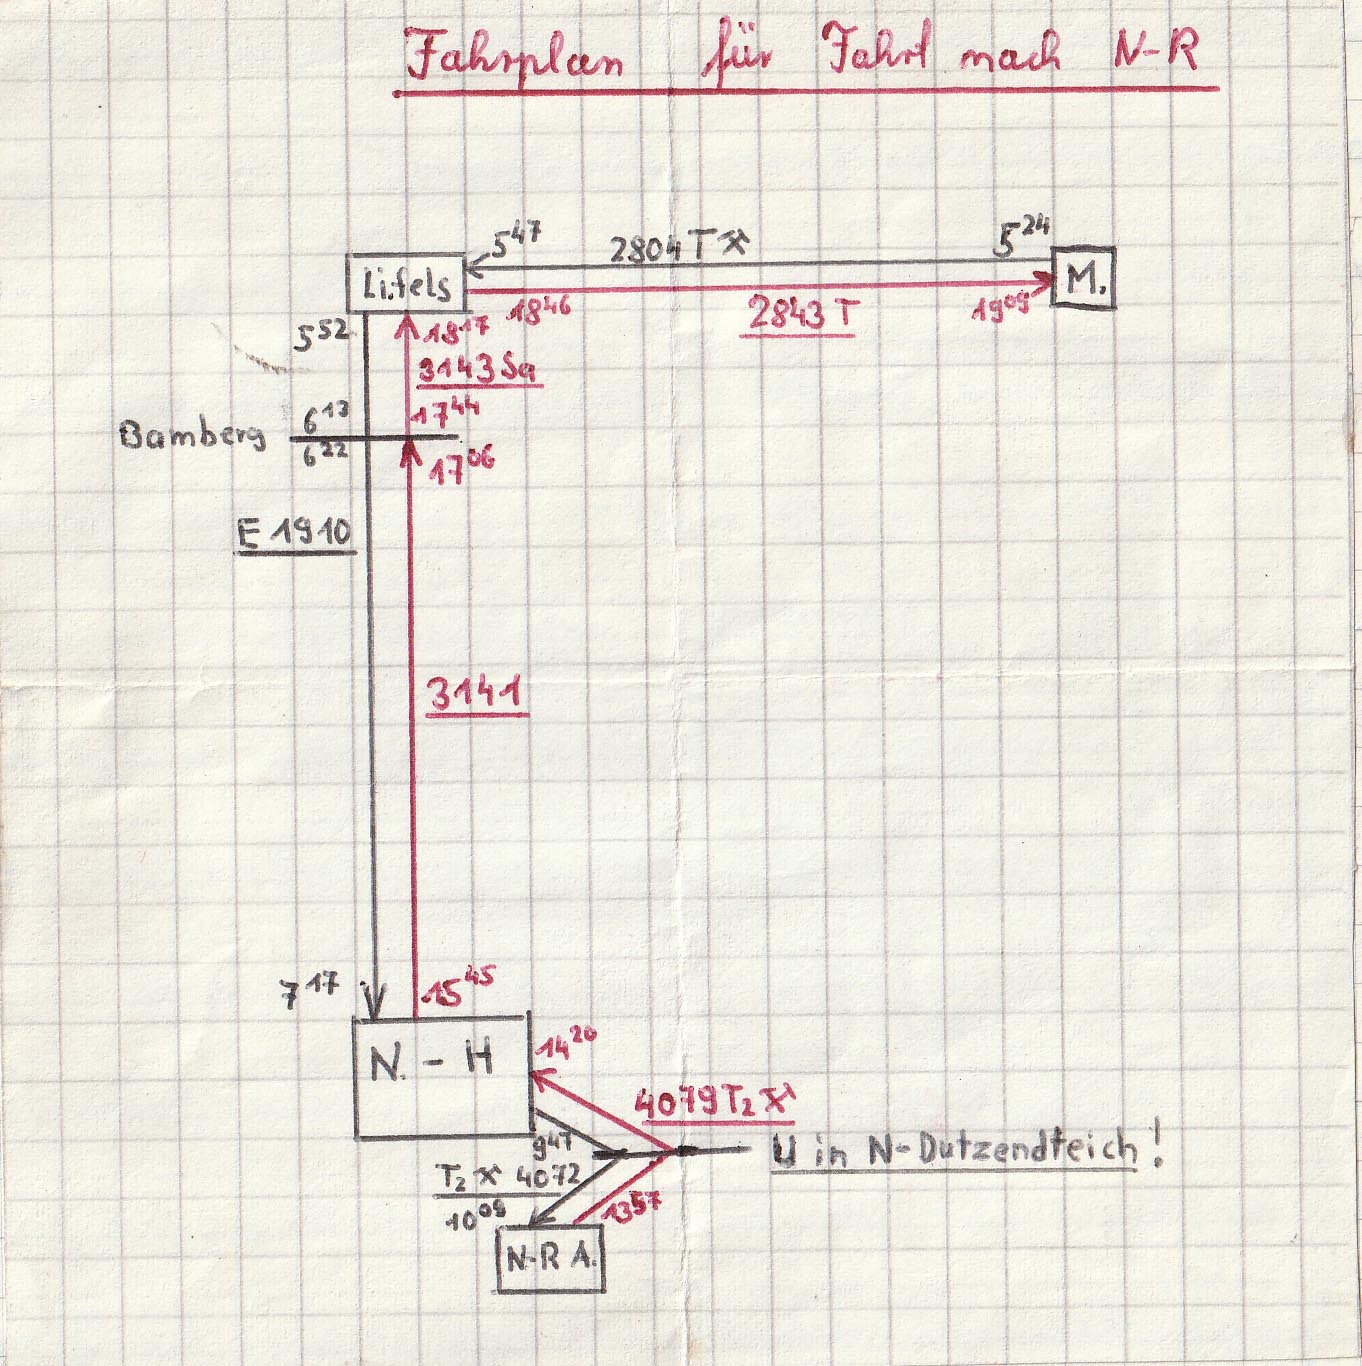 Fahrplan für Fahrt nach N-R
5⁴⁷ 2804 T ⚒ 5²⁴
Li.fels M.
18⁴⁶ 2843 T 19⁰⁹
5⁵² 18¹⁷
3143 Sa
6¹³ 17⁴⁴
Bamberg
6²² 17⁰⁶
E 1910
3141
7¹⁷ 15⁴⁵
N. - H 14²⁰
4079 T₂ ⚒
9⁴⁷ U in N-Dutzendteich!
T₂ ⚒ 4072
10⁰⁹ 13⁵⁷
N-R A.